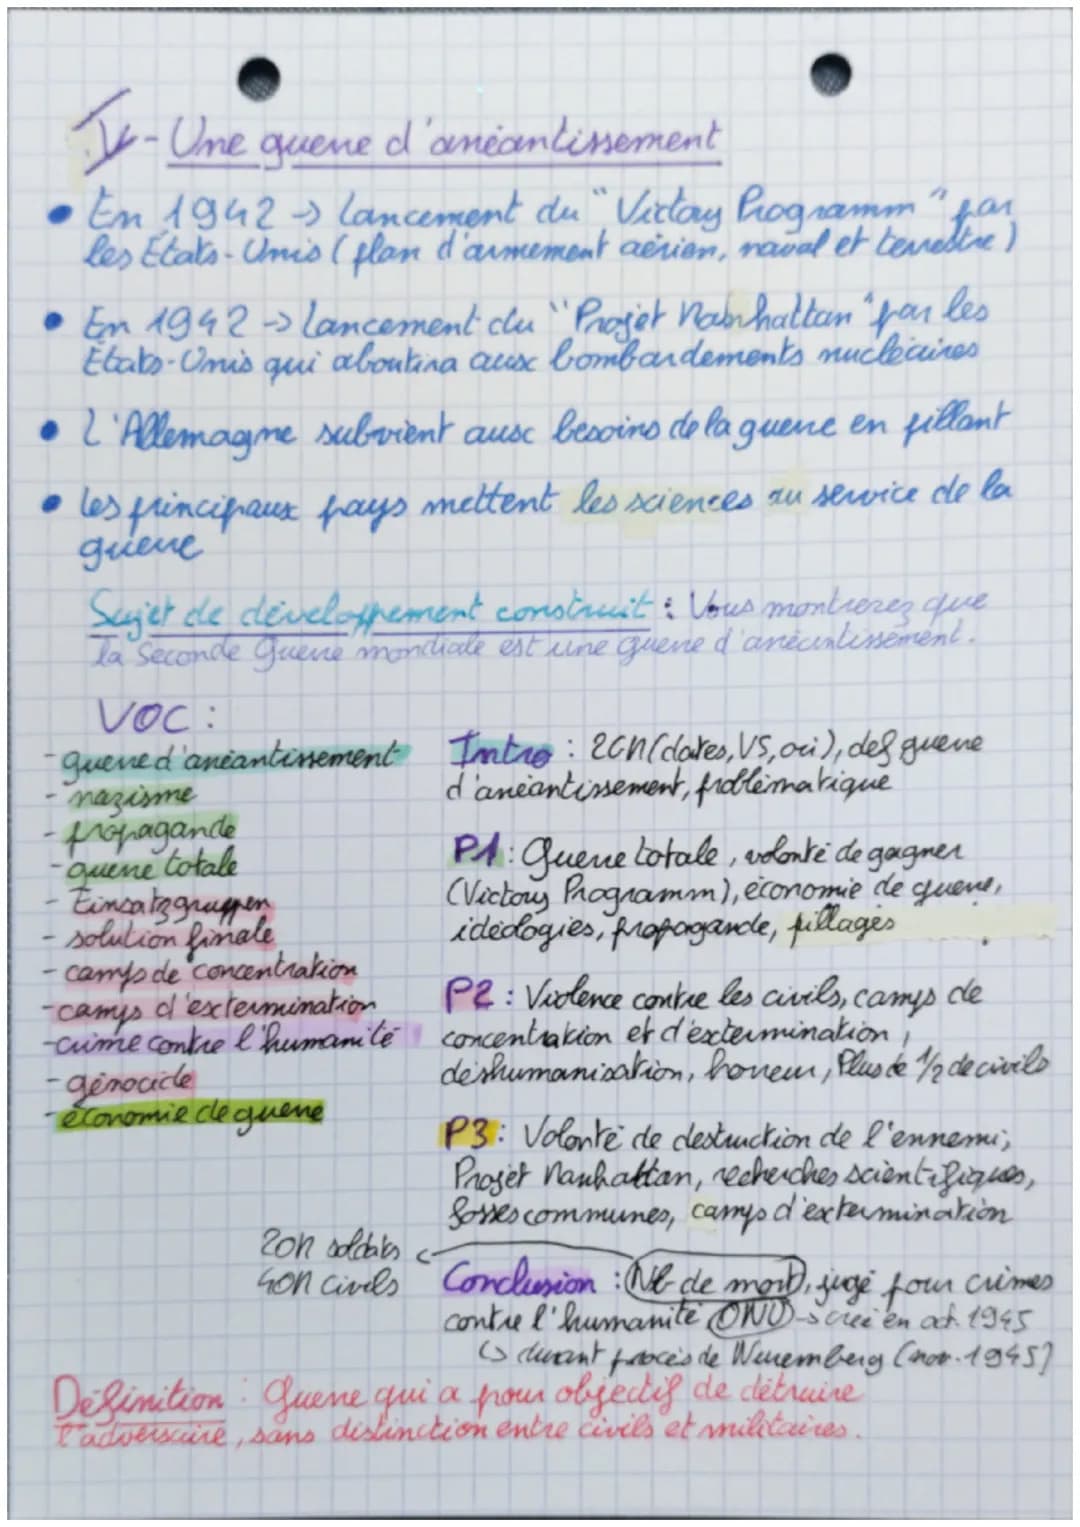 V - Une guerre d'anéantissement
• En 1942 -> Lancement du "Victory Programm" par
les États-Unis (plan d'armement aérien, naval et terrestre)
• En 1942 -> Lancement du "Projet Manhattan" par les
États-Unis qui aboutira aux bombardements nucléaires
• L'Allemagne subvient aux besoins de la guerre en pillant
• Les principaux pays mettent les sciences au service de la
guerre
Sujet de développement construit : Vous montrerez que
la Seconde Guerre mondiale est une guerre d'anéantissement.
VOC :
- guerre d'anéantissement
- nazisme
- propagande
- guerre totale
- Einsatzgruppen
- solution finale
- camps de concentration
- camps d'extermination
- crime contre l'humanité
- génocide
- économie de guerre
Intro : 2GM (dates, VS, où), def guerre
d'anéantissement, problématique
P1 : Guerre totale, volonté de gagner
(Victory Programm), économie de guerre,
idéologies, propagande, pillages
P2 : Violence contre les civils, camps de
concentration et d'extermination,
déshumanisation, horreur, Plus de 1/2 de civils
P3 : Volonté de destruction de l'ennemi,
Projet Manhattan, recherches scientifiques,
fosses communes, camps d'extermination
20M soldats
40M civils
Conclusion : Nb de mort, jugé pour crimes
contre l'humanité ONU -> créé en oct. 1945
↳ durant procès de Nuremberg (nov. 1945)
Définition : Guerre qui a pour objectif de détruire
l'adversaire, sans distinction entre civils et militaires.